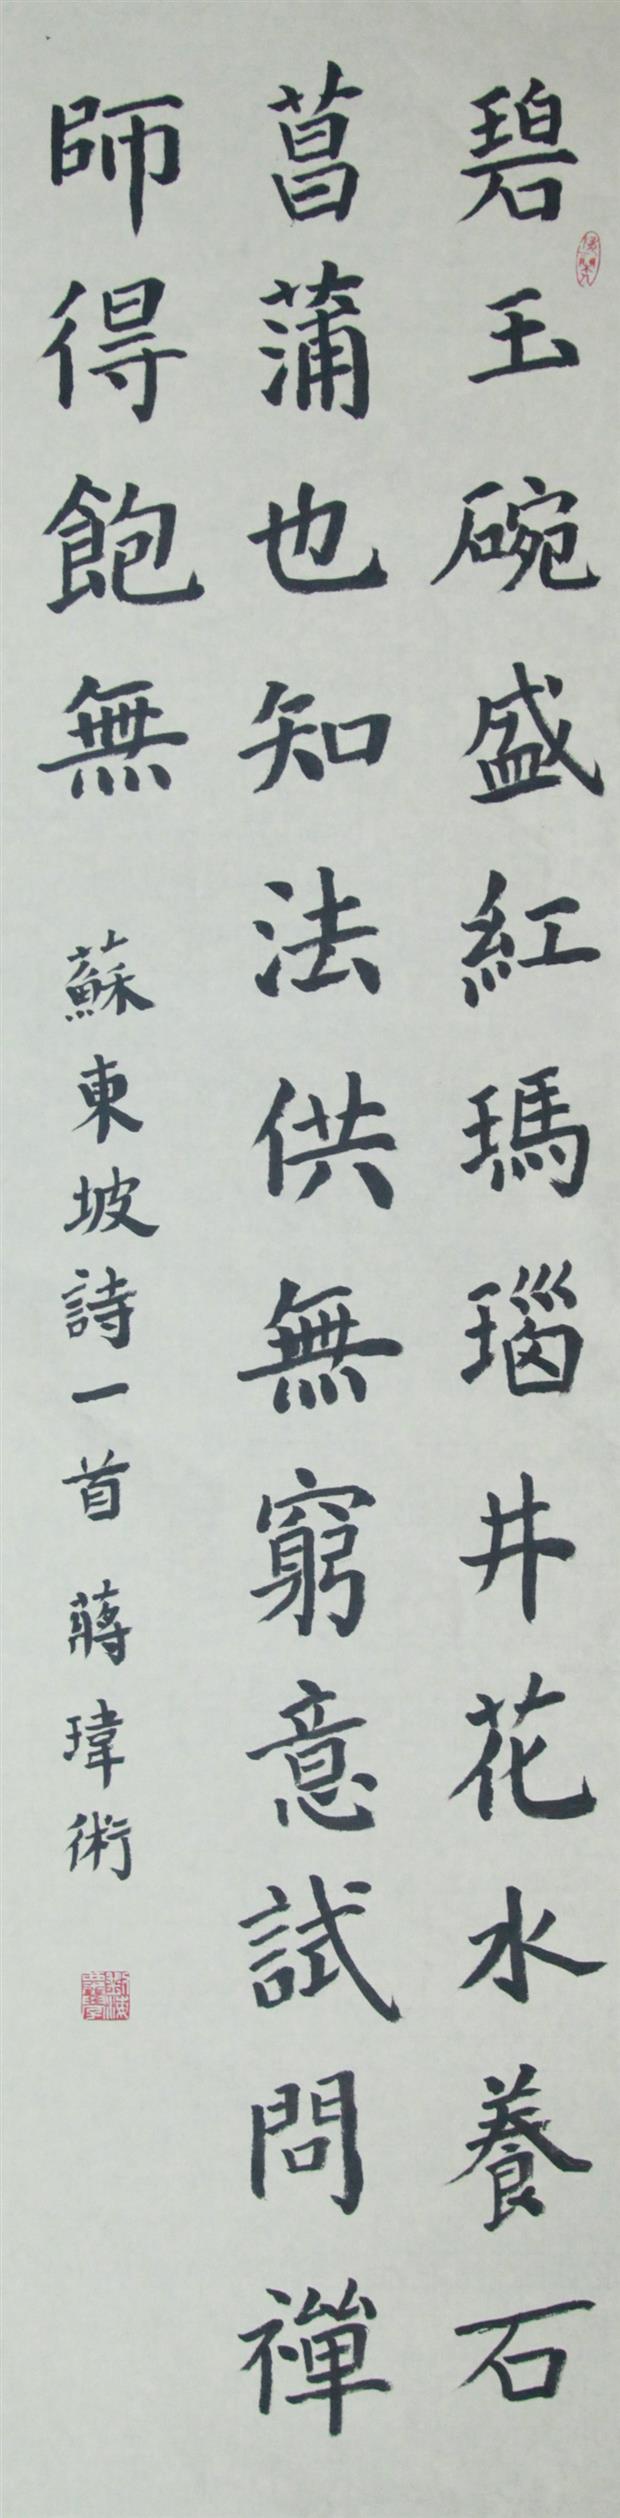 碧玉碗盛紅瑪瑙井花水養石
菖蒲也知法供無窮意試問禪
師得飽無
蘇東坡詩一首 蔣瑋術